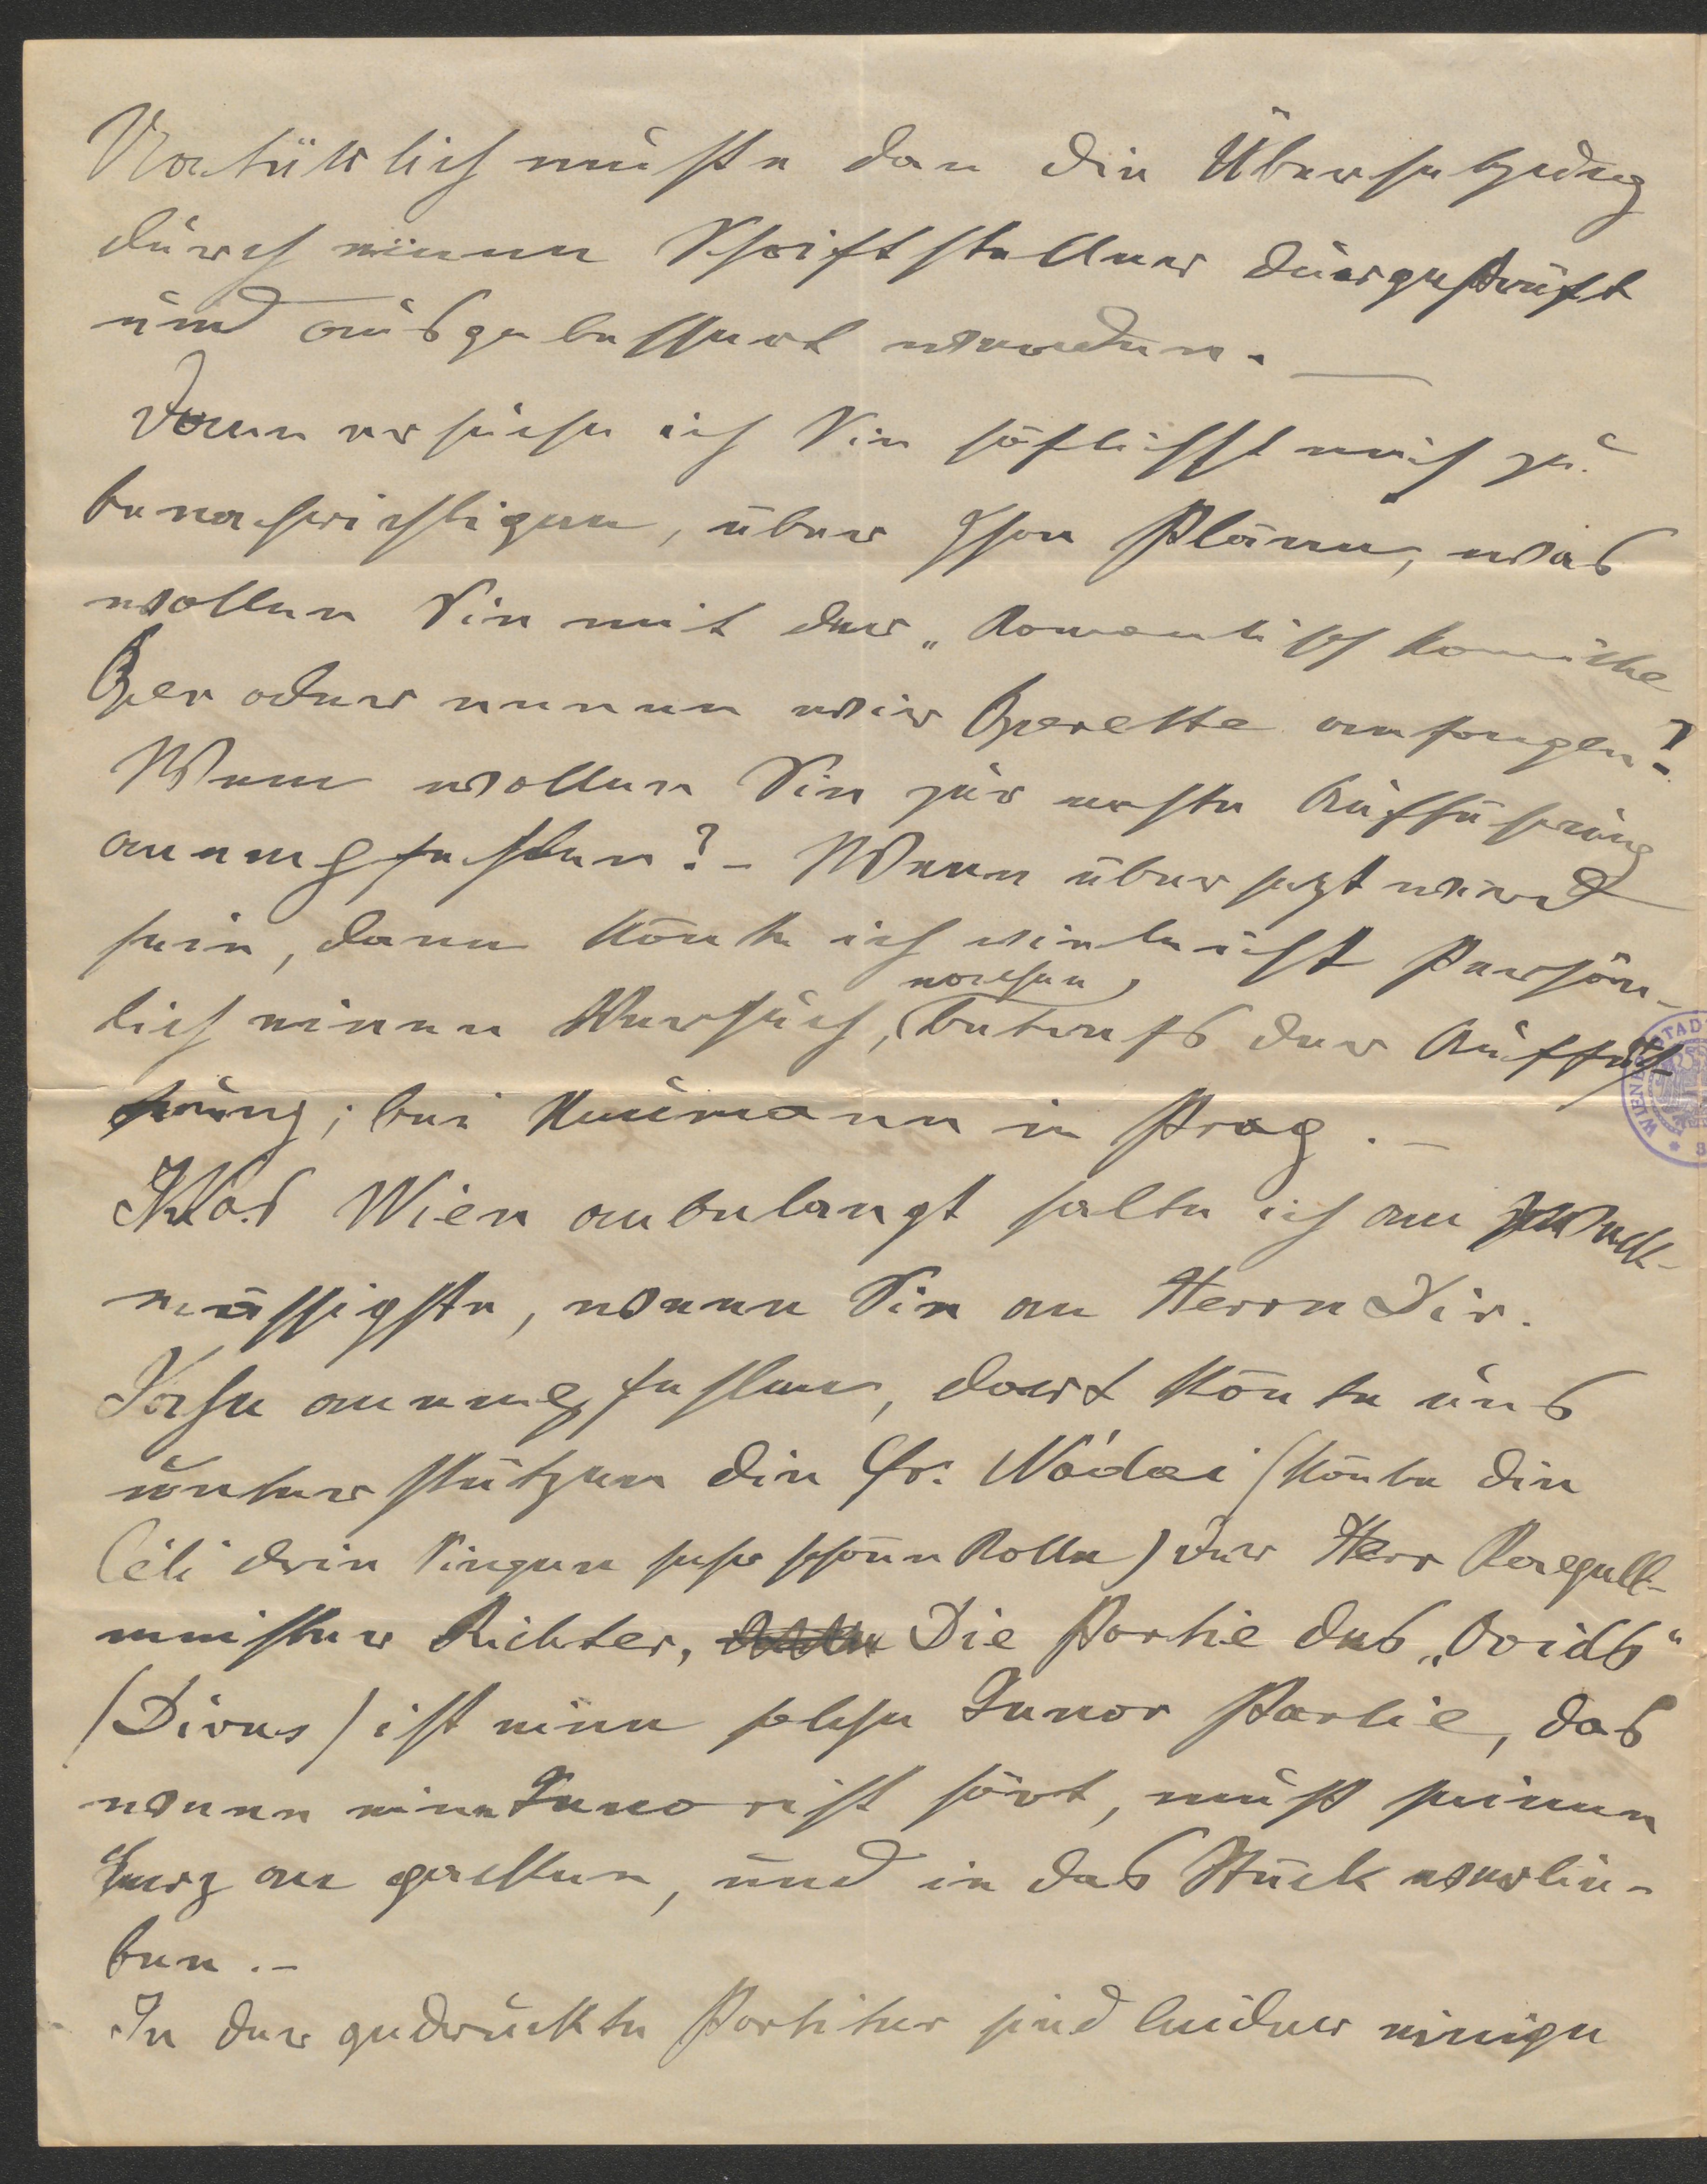 Natürlich müsste dan die Übersetzung
durch einen Schriftsteller durgeprüft
und ausgebessert werden. —
Dann ersuche ich Sie höflichst mich zu
benachrichtigen, über Ihre Pläne, was
wollen Sie mit der „Romantisch komische
Oper oder nennen wir Operette anfangen?
Wem wollen Sie zür erste Aufführung
anempfehlen? – Wenn übersezt wird
sein, dann könte ich vieleicht persön-
lich einen Versuch, (betrefs der Auffüh-
machen,
rung; bei Neumann in Prag. –
Was Wien anbelangt halte ich am zweck-
mässigste, wenn Sie an Herrn Dir.
Jahn anempfehlen, dort könte uns
unterstützen die Fr: Nádai (könte die
Céli drin Singen sehr schöne Rolle) der Herr Kapell-
meister Richter, Die Partie des „Ovids"
(Divus) ist eine solche Tenor Partie, das
wenn eine Tenorist hört, muss seinen
Herz an gehen, und in das Stück verlie-
ben. –
In der gedruckte Partitur sind leider einige
WIENER STAD